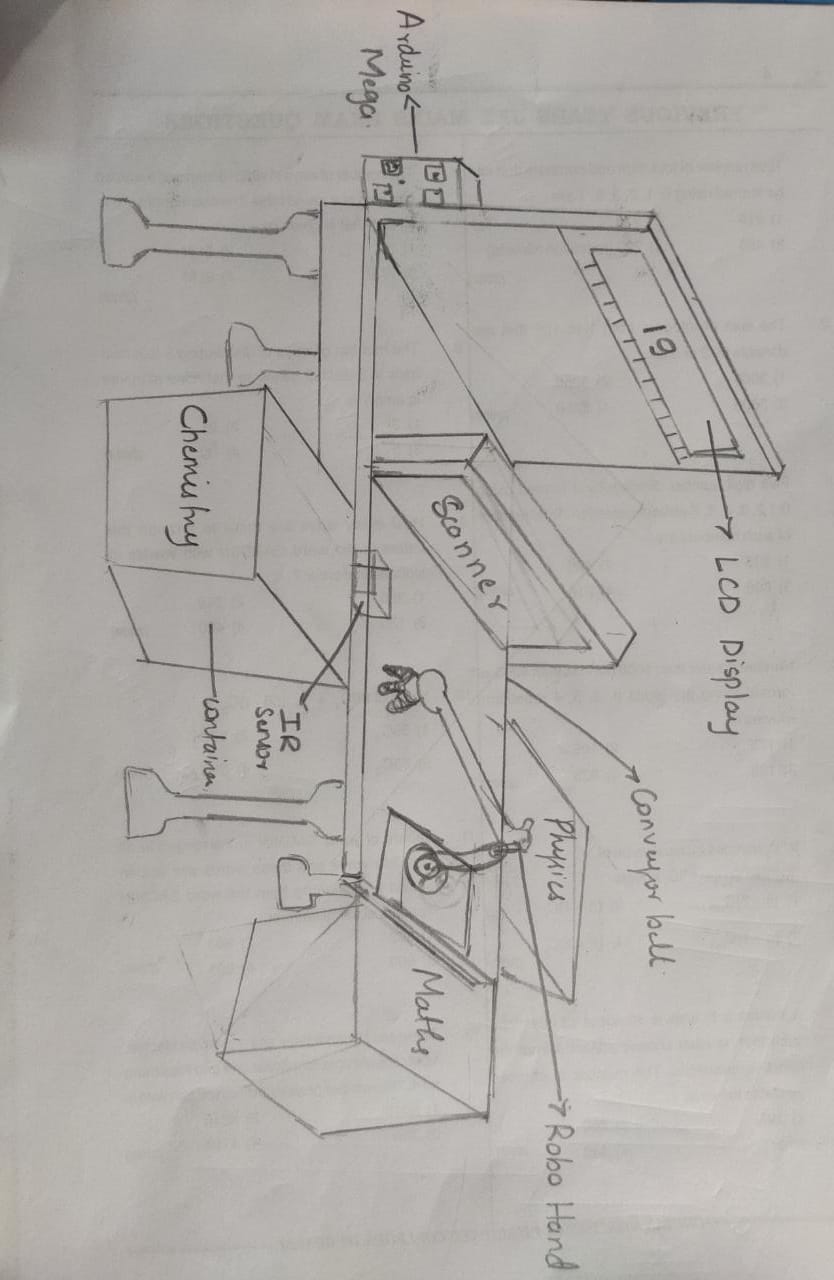 LCD Display
19
Conveyor belt
Physics
Robo Hand
Scanner
Maths
Arduino
Mega.
IR
Sensor
Container
Chemistry